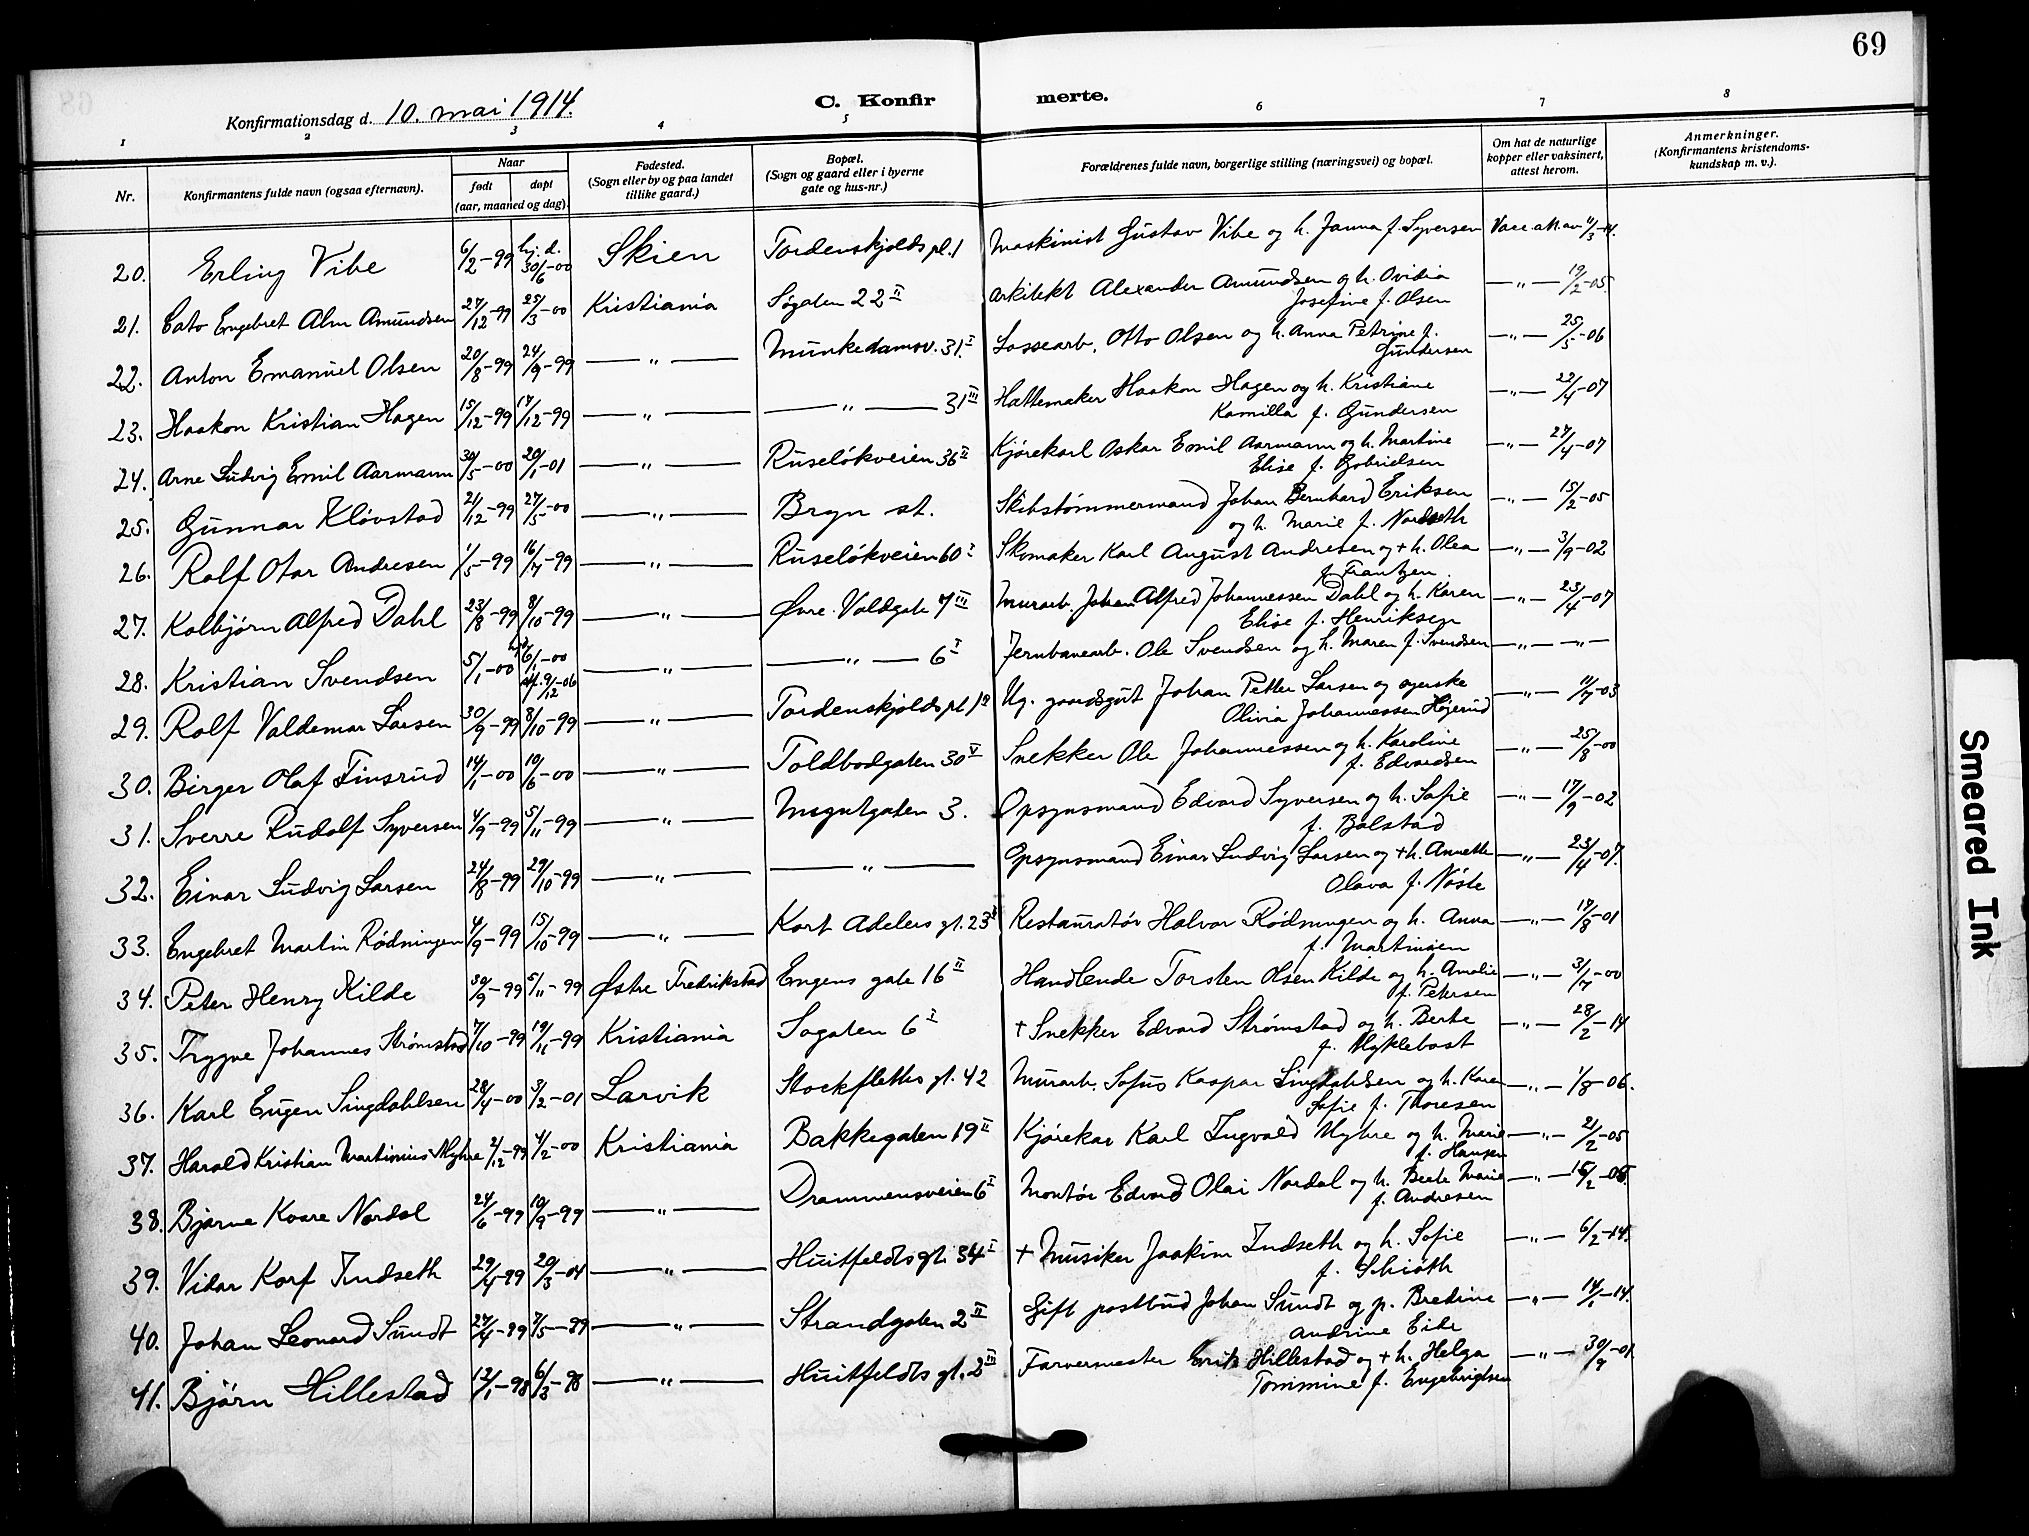 69
Konfirmationsdag d. 10. mai 1914.
C. Konfirmerte.
1 2 3 4 5 6 7 8
Nr.
Konfirmantens fulde navn (ogsaa efternavn).
Naar
født
døpt
(aar, maaned og dag).
Fødested.
(Sogn eller by og paa landet
tillike gaard.)
Bopæl.
(Sogn og gaard eller i byerne
gate og hus-nr.)
Forældrenes fulde navn, borgerlige stilling (næringsvei) og bopæl.
Om hat de naturlige
kopper eller vaksinert,
attest herom.
Anmerkninger.
(Konfirmantens kristendoms-
kundskap m. v.).
20. Erling Vibe 6/2-99 hj. d. 30/6-00 Skien Tordenskjolds pl. 1 Maskinist Gustav Vibe og h. Janna f. Syversen Vacc. att. av 4/3-14.
21. Cato Engebret Alm Amundsen 27/12-99 25/3-00 Kristiania Søgaten 22 II Arkitekt Alexander Amundsen og h. Ovidia
Josefine f. Olsen —"— 19/2-05.
22. Anton Emanuel Olsen 20/8-99 24/9-99 —"— Munkedamsv. 31. I Lossearb. Otto Olsen og h. Anna Petrine f.
Gundersen —"— 25/5-06
23. Haakon Kristian Hagen 15/12-99 17/12-99 —"— —"— 31 III Hattemaker Haakon Hagen og h. Kristiane
Kamilla f. Gundersen —"— 22/4-07
24. Arne Ludvig Emil Aarmann 30/5-00 20/1-01 —"— Ruseløkveien 36 II Kjørekarl Oskar Emil Aarmann og h. Martine
Elise f. Gabrielsen —"— 27/4-07
25. Gunnar Kløvstad 21/12-99 27/5-00 —"— Bryn st. Skibstømmermand Johan Bernhard Eriksen
og h. Marie f. Nordseth —"— 15/2-05
26. Rolf Otar Andresen 1/5-99 16/7-99 —"— Ruseløkveien 60 I Skomaker Karl August Andresen og + h. Olea
f. Frantzen —"— 3/9-02
27. Kolbjørn Alfred Dahl 23/8-99 8/10-99 —"— Øvre Voldgate 7 III Murarb. Johan Alfred Johannessen Dahl og h. Karen
Elise f. Henriksen —"— 23/4-07
28. Kristian Svendsen 5/1-00 hj. d. 6/1-00 9/12-06 —"— —"— 6 I Jernbanearb. Ole Svendsen og h. Maren f. Svendsen —"— —"—
29. Rolf Valdemar Larsen 30/9-99 8/10-99 —"— Tordenskjolds pl. 1 a Ug. gaardsgut Johan Petter Larsen og syerske
Olivia Johannessen Høgerud —"— 11/7-03
30. Birger Olaf Finsrud 14/1-00 10/6-00 —"— Toldbodgaten 30 V Snekker Ole Johannessen og h. Karoline
f. Edvardsen —"— 25/8-00
31. Sverre Rudolf Syversen 4/9-99 5/11-99 —"— Myntgaten 3. Opsynsmand Edvard Syversen og h. Sofie
f. Bolstad —"— 17/9-02
32. Einar Ludvig Larsen 24/8-99 29/10-99 —"— —"— Opsynsmand Einar Ludvig Larsen og + h. Annette
Olava f. Nøste —"— 23/4-07.
33. Engebret Martin Rødningen 4/9-99 15/10-99 —"— Kort Adelers gt. 23 Restauratør Halvor Rødningen og h. Anna
f. Martinsen —"— 17/8-01
34. Peter Henry Kilde 30/9-99 5/11-99 Østre Fredrikstad Engens gate 16 II Handlende Torsten Olsen Kilde og h. Amalie
f. Petersen —"— 3/7-00
35. Trygve Johannes Strømstad 7/10-99 19/11-99 Kristiania Sogaten 6 I + Snekker Edvard Strømstad og h. Berte
f. Myklebost —"— 28/2-14
36. Karl Eugen Singdahlsen 28/4-00 3/2-01 Larvik Stockfleths gt. 42 Murarb. Sofus Kaspar Singdahlsen og h. Karen
Sofie f. Thoresen —"— 1/8-06.
37. Harald Kristian Martinius Myhre 2/12-99 4/2-00 Kristiania Bakkegaten 19 II Kjørekar Karl Ingvald Myhre og h. Marie
f. Hansen —"— 21/2-05
38. Bjarne Kaare Nordal 24/6-99 10/9-99 —"— Drammensveien 6 I Montør Edvard Olai Nordal og h. Berte Marie
f. Andresen —"— 15/2-06
39. Vidar Korf Indseth 29/4-99 20/3-04 —"— Huitfeldts gt. 34 I + Musiker Joakim Indseth og h. Sofie
f. Schiøth —"— 6/2-14.
40. Johan Leonard Sundt 27/4-99 7/5-99 —"— Strandgaten 2 II Gift postbud Johan Sundt og p. Bredine
Andrine Eide —"— 14/1-14.
41. Bjørn Hillestad 12/1-98 6/3-98 —"— Huitfeldts gt. 2 III Farvermester Hillestad og + h. Helga
Tommine f. Engebrigtsen —"— 30/9-01
Smeared Ink